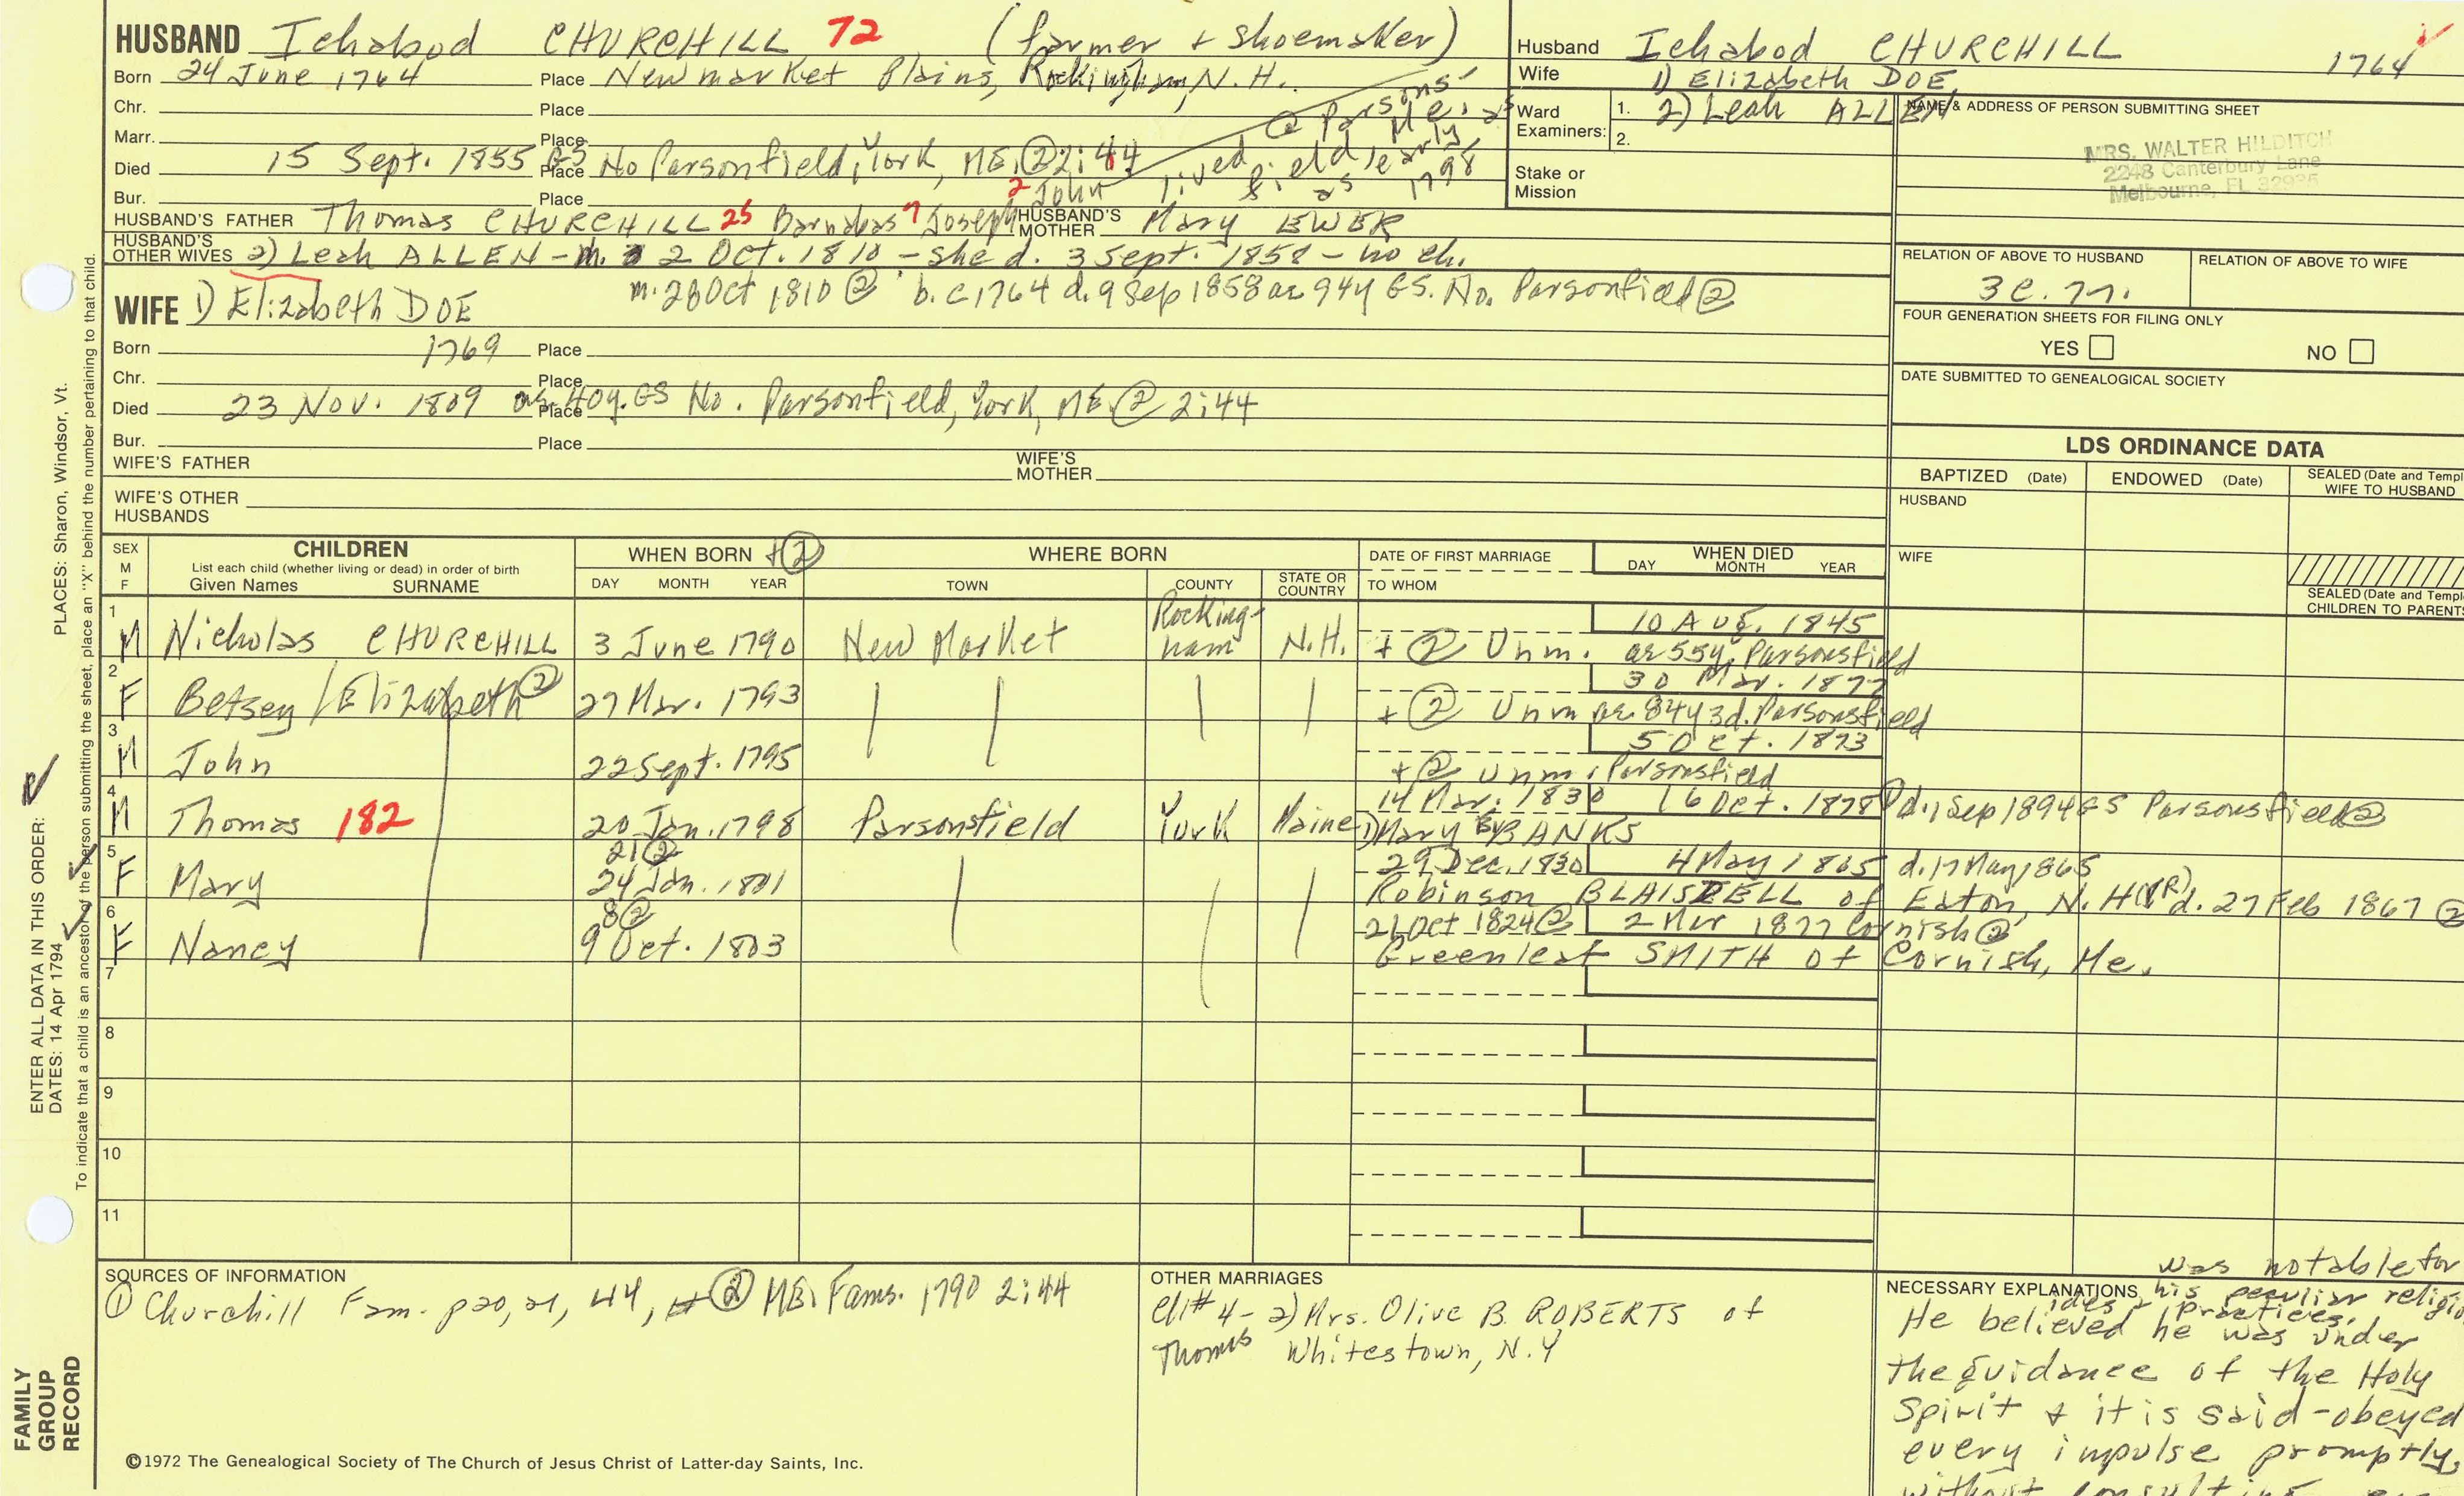 HUSBAND Ichabod CHURCHILL 72 (farmer + shoemaker)
Born 24 June 1764 Place Newmarket Plains, Rockingham, N.H.
Chr. Place
Marr. Place
Died 15 Sept. 1855 GS Place No Parsonfield, York, ME, ② 2:44
② Parsons-
lived field Me. as
as early
1798
Bur. Place
2 John
HUSBAND'S FATHER Thomas CHURCHILL 25 Barnabas 7 Joseph HUSBAND'S MOTHER Mary EWER
HUSBAND'S OTHER WIVES 2) Leah ALLEN - m. 2 Oct. 1810 - she d. 3 Sept. 1858 - no ch.
m. 28 Oct 1810 ② b. c1764 d. 9 Sep 1858 ae 94y GS. No. Parsonfield ②
WIFE 1) Elizabeth DOE
Born 1769 Place
Chr. Place
Died 23 Nov. 1809 ae. 40y. GS Place No. Parsonfield, York, ME ② 2:44
Bur. Place
WIFE'S FATHER WIFE'S MOTHER
WIFE'S OTHER HUSBANDS
Husband Ichabod CHURCHILL 1764
Wife 1) Elizabeth DOE
2) Leah ALLEN
Ward Examiners: 1.
2.
Stake or Mission
NAME & ADDRESS OF PERSON SUBMITTING SHEET
MRS. WALTER HILDITCH
2248 Canterbury Lane
Melbourne, FL 32935
RELATION OF ABOVE TO HUSBAND RELATION OF ABOVE TO WIFE
FOUR GENERATION SHEETS FOR FILING ONLY
YES NO
DATE SUBMITTED TO GENEALOGICAL SOCIETY
LDS ORDINANCE DATA
BAPTIZED (Date) ENDOWED (Date) SEALED (Date and Templ
WIFE TO HUSBAND
HUSBAND
WIFE
SEALED (Date and Templ
CHILDREN TO PARENTS
SEX M F CHILDREN WHEN BORN + ② WHERE BORN DATE OF FIRST MARRIAGE WHEN DIED
List each child (whether living or dead) in order of birth
Given Names SURNAME DAY MONTH YEAR TOWN COUNTY STATE OR COUNTRY TO WHOM DAY MONTH YEAR
1 10 Aug. 1845
M Nicholas CHURCHILL 3 June 1790 New Market Rockingham N.H. + ② Unm. ae 55y, Parsonsfield
2 30 Mar. 1877
F Betsey / Elizabeth ② 27 Mar. 1793 + ② Unm ae. 84y 3d. Parsonsfield
3 5 Oct. 1873
M John 22 Sept. 1795 + ② Unm. Parsonsfield
4 14 Mar. 1830 16 Oct. 1878 d. 1 Sep 1894 GS Parsonsfield ②
M Thomas 182 20 Jan. 1798 Parsonsfield York Maine 1) Mary BANKS
5 21 ② 29 Dec. 1830 4 May 1865 d. 17 May 1865
F Mary 24 Jan. 1801 Robinson BLAISDELL of Eaton, N.H. (VR) d. 27 Feb 1867 ②
6 8 ② 21 Oct 1824 ② 2 Mar 1877 Cornish ②
F Nancy 9 Oct. 1803 Greenleaf SMITH of Cornish, Me.
7
8
9
10
11
SOURCES OF INFORMATION
① Churchill Fam. p 20, 21, 44, ② ME. Fams. 1790 2:44
OTHER MARRIAGES
Ch# 4 - 2) Mrs. Olive B. ROBERTS of
Thomas Whitestown, N.Y
was notable for
NECESSARY EXPLANATIONS his peculiar religio
ideas + practices.
He believed he was under
the guidance of the Holy
Spirit + it is said - obeyed
every impulse promptly,
without consulting
©1972 The Genealogical Society of The Church of Jesus Christ of Latter-day Saints, Inc.
FAMILY GROUP RECORD
ENTER ALL DATA IN THIS ORDER:
DATES: 14 Apr 1794
PLACES: Sharon, Windsor, Vt.
To indicate that a child is an ancestor of the person submitting the sheet, place an "X" behind the number pertaining to that child.